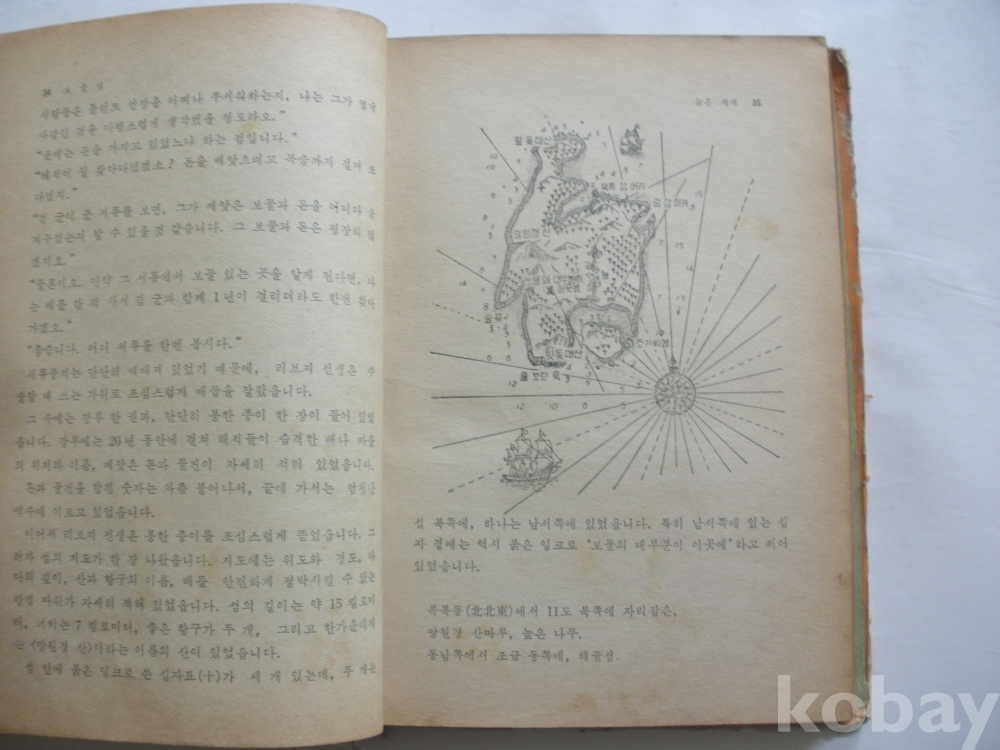 34 보 물 섬
사람들은 플린트 선장을 어찌나 무서워하는지, 나는 그가 영국
사람인 것을 다행스럽게 생각했을 정도라오.”
“군에는 돈을 가지고 있었느냐 하는 점입니다.”
돈을 빼앗으려고 목숨까지 걸어
“짐 군이 준 서류를 보면, 그가 빼앗은 보물과 돈을 어디다 숨
겨두었는지 알 수 있을것 같습니다. 그 보물과 돈은 굉장히 많
겠지요.”
“물론이요. 만약 그 서류에서 보물 있는 곳을 알게 된다면, 나
는 배를 한 척 사서 짐 군과 함께 1년이 걸리더라도 한번 찾아
가겠소.”
“좋습니다. 어디 서류를 한번 봅시다.”
서류뭉치는 단단히 꿰매져 있었기 때문에, 리브지 선생은 수
술할 때 쓰는 가위로 조심스럽게 매듭을 잘랐읍니다.
그 속에는 장부 한 권과, 단단히 봉한 종이 한 장이 들어 있었
읍니다. 장부에는 20년 동안에 걸쳐 해적들이 습격한 배나 마을
의 위치와 이름, 빼앗은 돈과 물건이 자세히 적혀 있었읍니다.
돈과 물건을 합친 숫자는 차츰 불어나서, 끝에 가서는 엄청난
액수에 이르고 있었읍니다.
이어서 리브지 선생은 봉한 종이를 조심스럽게 뜯었읍니다. 그
러자 섬의 지도가 한 장 나왔읍니다. 지도에는 위도와 경도, 바
다의 깊이, 산과 항구의 이름, 배를 안전하게 정박시킬 수 있는
방법 따위가 자세히 적혀 있었읍니다. 섬의 길이는 약 15 킬로미
터, 너비는 7 킬로미터, 좋은 항구가 두 개, 그리고 한가운데에
는 〈망원경 산〉이라는 이름의 산이 있었읍니다.
섬 안에 붉은 잉크로 쓴 십자표(十)가 세 개 있는데, 두 개는
늙은 해적 35
앞돛대산
북쪽 섬 어귀
망원경 산
해골섬
섬 북쪽에, 하나는 남서쪽에 있었읍니다. 특히 남서쪽에 있는 십
자 곁에는 역시 붉은 잉크로 ‘보물의 대부분이 이곳에’라고 씌어
있었읍니다.
북북동(北北東)에서 11도 북쪽에 자리잡은,
망원경 산마루, 높은 나무.
동남쪽에서 조금 동쪽에, 해골섬.
kobay